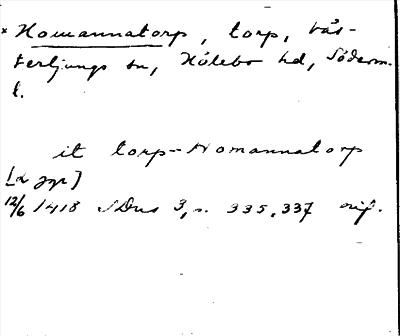 * Homannatorp, torp, Väs-
terljungs sn, Hölebo hd, Söderm.
l.
it torp-Homannatorp
[2 ggr]
12/6 1418 SDns 3, s. 335, 337 orig.